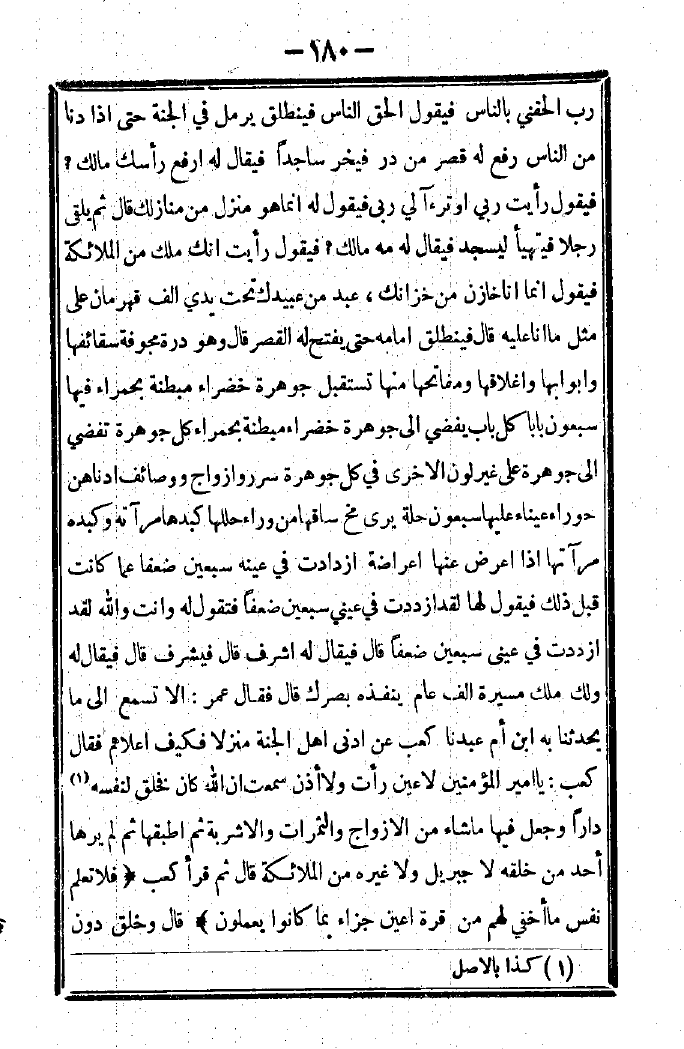 — ٢٨٠ —
رب الحقني بالناس فيقول الحق الناس فينطلق يرمل في الجنة حتى اذا دنا
من الناس رفع له قصر من در فيخر ساجداً فيقال له ارفع رأسك مالك ?
فيقول رأيت ربي او ترءآ لي ربى فيقول له انما هو منزل من منازلك قال ثم يلقى
رجلا فيتهيأ ليسجد فيقال له مه مالك ? فيقول رأيت انك ملك من الملائكة
فيقول انما انا خازن من خزانك ، عبد من عبيدك تحت يدي الف قهرمان على
مثل ما انا عليه قال فينطلق امامه حتى يفتح له القصر قال وهو درة مجوفة سقائفها
وابوابها واغلاقها ومفاتحها منها تستقبل جوهرة خضراء مبطنة بحمراء فيها
سبعون بابا كل باب يفضي الى جوهرة خضراء مبطنة بحمراء كل جوهرة تفضي
الى جوهرة على غير لون الاخرى في كل جوهرة سرر وازواج ووصائف ادناهن
حوراء عيناء عليها سبعون حلة يرى مخ ساقها من وراء حللها كبدها مرآته وكبده
مرآتها اذا اعرض عنها اعراضة ازدادت في عينه سبعين ضعفا عما كانت
قبل ذلك فيقول لها لقد ازددت في عيني سبعين ضعفاً فتقول له وانت والله لقد
ازددت في عينى سبعين ضعفاً قال فيقال له اشرف قال فيشرف قال فيقال له
ولك ملك مسيرة الف عام ينفذه بصرك قال فقال عمر : الا تسمع الى ما
يحدثنا به ابن أم عبدنا كعب عن ادنى اهل الجنة منزلا فكيف اعلاهم فقال
كعب : يا امير المؤمنين لا عين رأت ولا أذن سمعت ان الله كان نخلق لنفسه (١)
داراً وجعل فيها ماشاء من الازواج والثمرات والاشربة ثم اطبقها ثم لم يرها
أحد من خلقه لا جبريل ولا غيره من الملائكة قال ثم قرأ كعب ﴿ فلا تعلم
نفس ما أخفي لهم من قرة اعين جزاء بما كانوا يعملون ﴾ قال وخلق دون
(١) كذا بالاصل